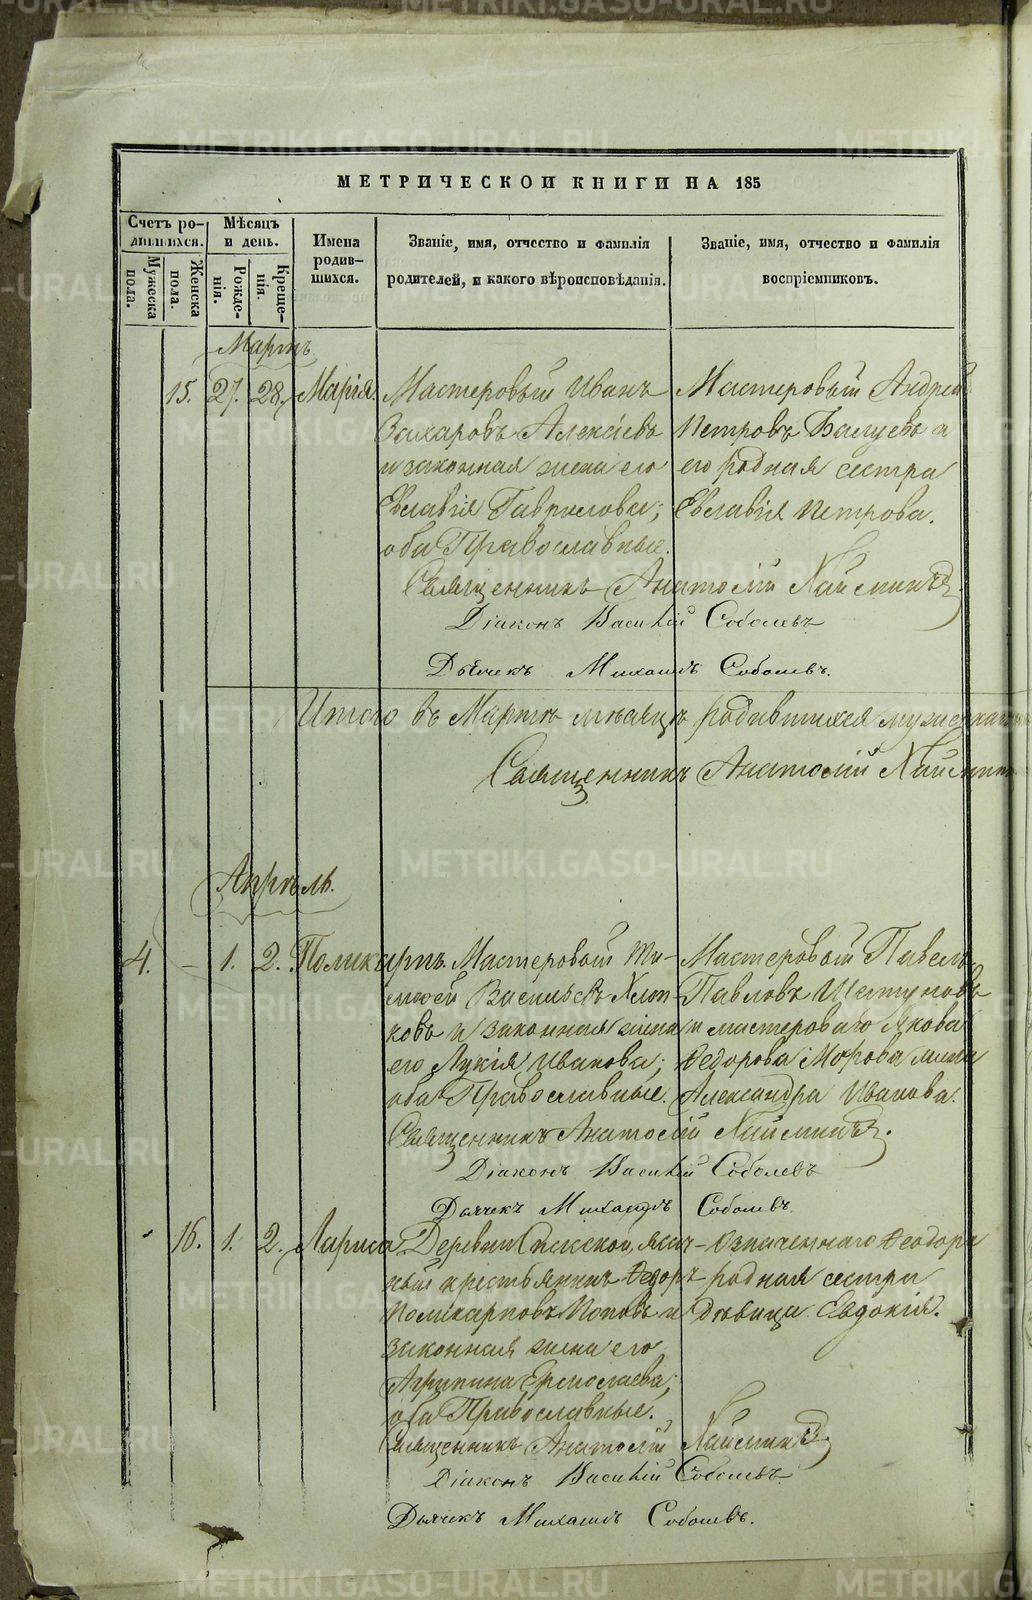 МЕТРИЧЕСКОЙ КНИГИ НА 185
Счетъ ро-
дившихся.
Мужеска
пола.
Женска
пола.
Мѣсяцъ
и день.
Рожде-
нія.
Креще-
нія.
Имена
родив-
шихся.
Званіе, имя, отчество и фамилія
родителей, и какого вѣроисповѣданія.
Званіе, имя, отчество и фамилія
воспріемниковъ.
Мартъ
15. 27. 28. Марія.
Мастеровый Иванъ
Захаровъ Алексѣевъ
и законная жена его
Евлавія Гаврилова;
оба Православные.
Мастеровый Андрей
Петровъ Балуевъ и
его родная сестра
Евлавія Петрова.
Священникъ Анатолій
Діаконъ Василій Соболевъ
Дьячекъ Михаилъ Соболевъ.
Итого въ Мартѣ мѣсяцѣ родившихся мужеска
Священникъ Анатолій
Апрѣль.
4. – 1. 2. Поликарпъ.
Мастеровый Ти-
мофей Васильевъ Хлоп-
ковъ и законная жена
его Лукія Иванова;
оба Православные.
Мастеровый Павелъ
Павловъ Шелтуновъ
и мастероваго Якова
Федорова Морова жена
Александра Иванова.
Священникъ Анатолій
Діаконъ Василій Соболевъ
Дьячекъ Михаилъ Соболевъ.
16. 1. 2. Лариса.
Деревни
крестьянинъ Федоръ
Поликарповъ Поповъ и
законная жена его
Агрипина Ермолаева;
оба Православные.
Означеннаго Феодора
родная сестра
дѣвица Евдокія.
Священникъ Анатолій
Діаконъ Василій Соболевъ
Дьячекъ Михаилъ Соболевъ.
METRIKI.GASO-URAL.RU